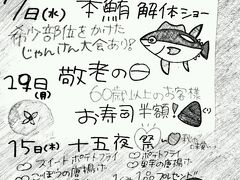 (水) 本鮪 解体ショー
希少部位をかけた
じゃんけん大会あり!
敬老の日
(月) 60歳以上のお客様
お寿司半額!
15日(木) 十五夜祭
○スイートポテトフライ ○ポテトフライ
○ごぼうの唐揚げ の唐揚げ
プレゼント